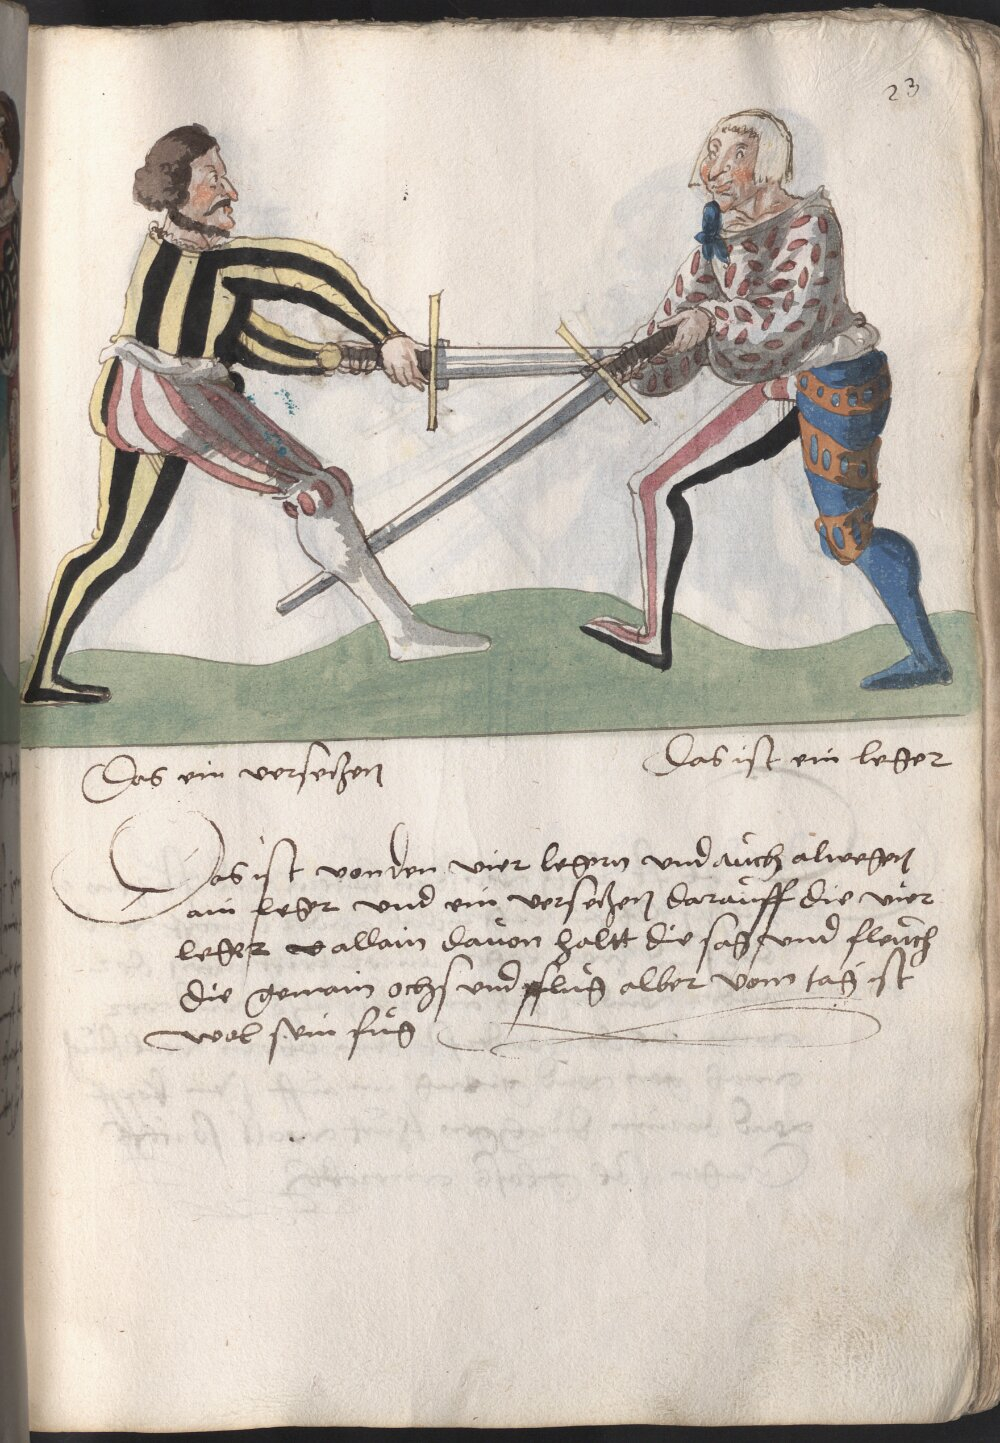 23
Das ein versetzen
Das ist ein leger
Das ist von den vier legern und auch alwegen
ain leger und ein versetzen darauff die vier
leger allain dauon haltt die sag und fleuch
die gemain ochs und pflug alber vom tag ist
wol sein fug